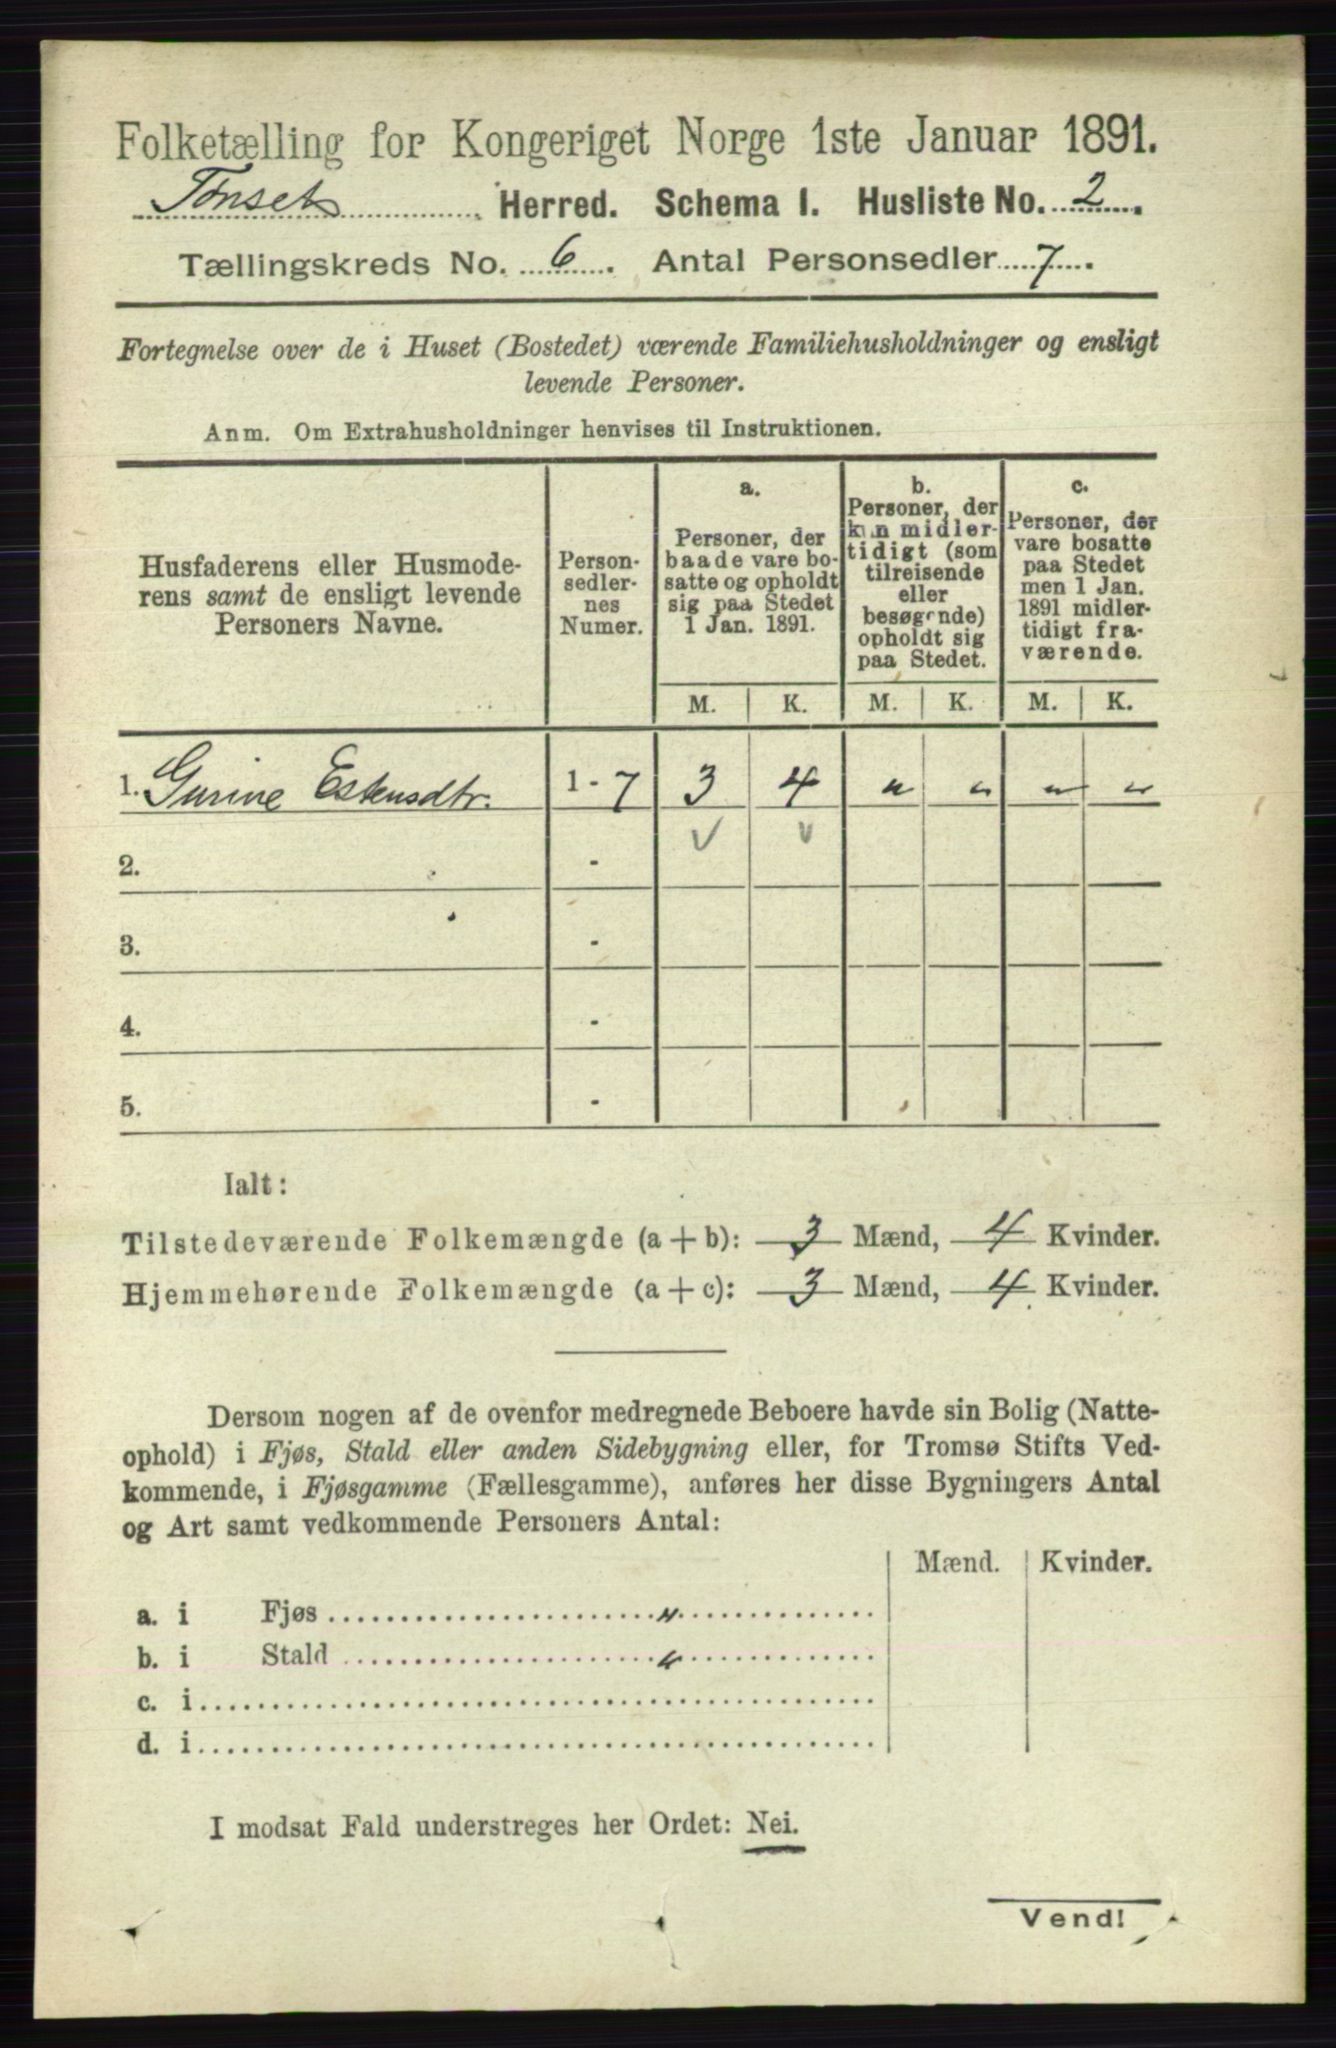 Folketælling for Kongeriget Norge 1ste Januar 1891.
Tønset Herred. Schema I. Husliste No. 2.
Tællingskreds No. 6. Antal Personsedler 7.
Fortegnelse over de i Huset (Bostedet) værende Familiehusholdninger og ensligt
levende Personer.
Anm. Om Extrahusholdninger henvises til Instruktionen.
Husfaderens eller Husmode-
rens samt de ensligt levende
Personers Navne.
Person-
sedler-
nes
Numer.
a.
Personer, der
baade vare bo-
satte og opholdt
sig paa Stedet
1 Jan. 1891.
b.
Personer, der
kun midler-
tidigt (som
tilreisende
eller
besøgende)
opholdt sig
paa Stedet.
c.
Personer, der
vare bosatte
paa Stedet
men 1 Jan.
1891 midler-
tidigt fra-
værende.
M. K. M. K. M. K.
1. Gurine Estensdtr. 1 - 7 3 4 " " " "
2. -
3. -
4. -
5. -
Ialt:
Tilstedeværende Folkemængde (a + b): 3 Mænd, 4 Kvinder.
Hjemmehørende Folkemængde (a + c): 3 Mænd, 4 Kvinder.
Dersom nogen af de ovenfor medregnede Beboere havde sin Bolig (Natte-
ophold) i Fjøs, Stald eller anden Sidebygning eller, for Tromsø Stifts Ved-
kommende, i Fjøsgamme (Fællesgamme), anføres her disse Bygningers Antal
og Art samt vedkommende Personers Antal:
Mænd. Kvinder.
a. i Fjøs "
b. i Stald "
c. i
d. i
I modsat Fald understreges her Ordet: Nei.
Vend!